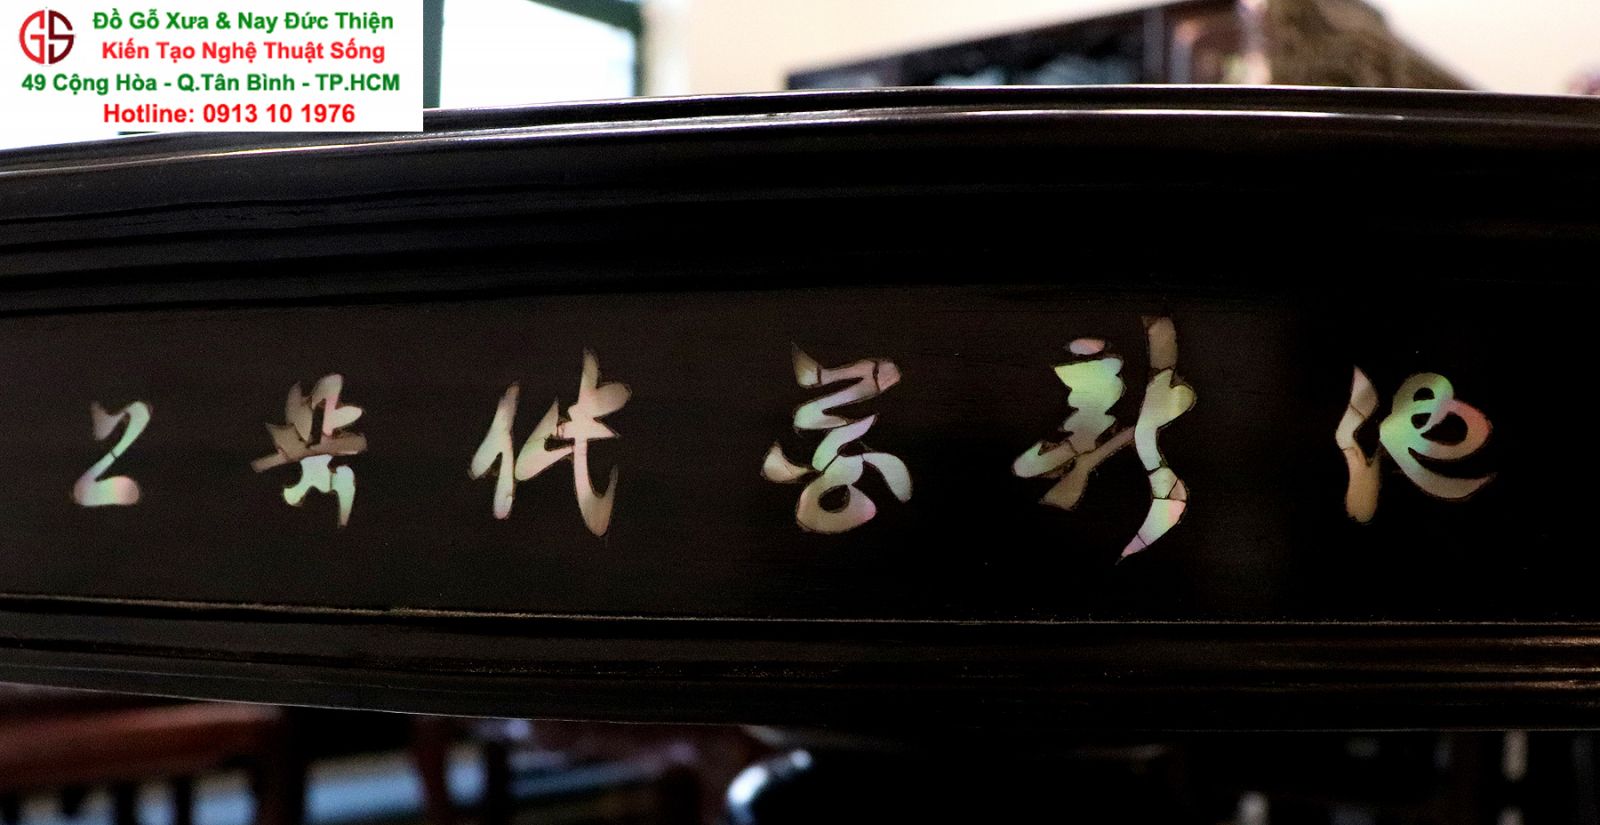 GS
Đồ Gỗ Xưa & Nay Đức Thiện
Kiến Tạo Nghệ Thuật Sống
49 Cộng Hòa - Q.Tân Bình - TP.HCM
Hotline: 0913 10 1976
代
新
池